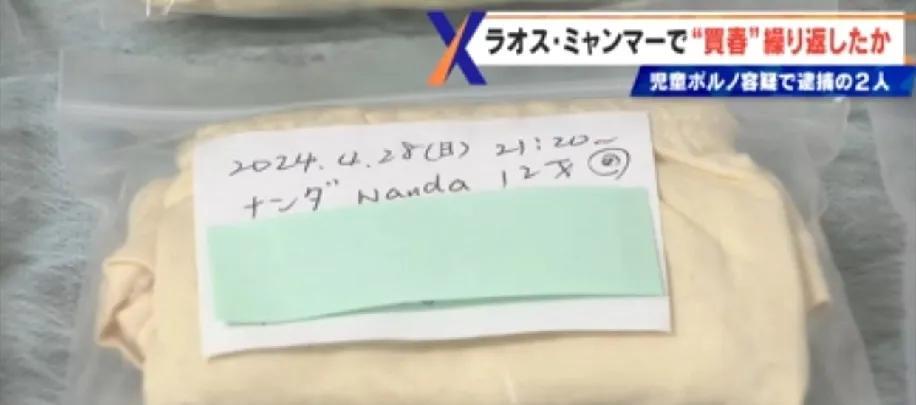 ラオス・ミャンマーで“買春”繰り返したか
児童ポルノ容疑で逮捕の2人
2024.4.28(日) 21:20~
ナンダ Nanda 12才